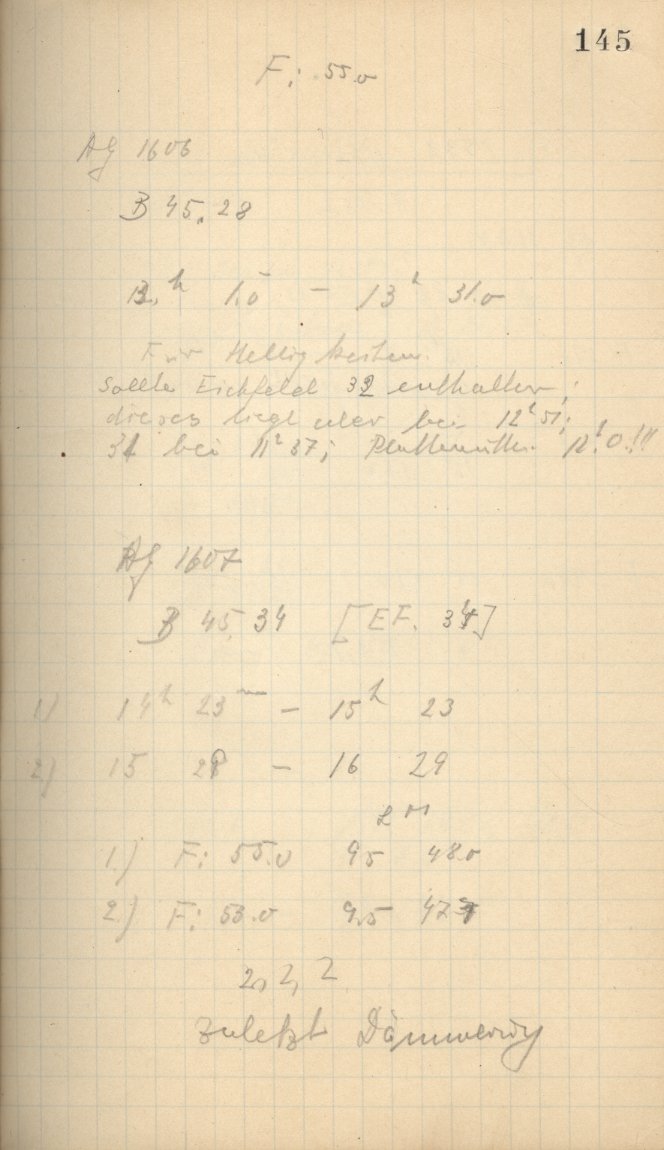 145
F: 55.0
AG 1606
B 45.28
12h 1.0 - 13h 31.0
Für Helligkeiten.
Sollte Eichfeld 32 enthalten;
dieses liegt aber bei 12h 51;
31 bei 11h 37; Plattenmitte 12h.0!!!
AG 1607
B 45.34 [EF. 34]
1) 14h 23m - 15h 23
2) 15 28 - 16 29
1.) F: 55.0 95 48.0
2.) F: 53.0 9.5
2, 2, 2
zuletzt Dämmerung